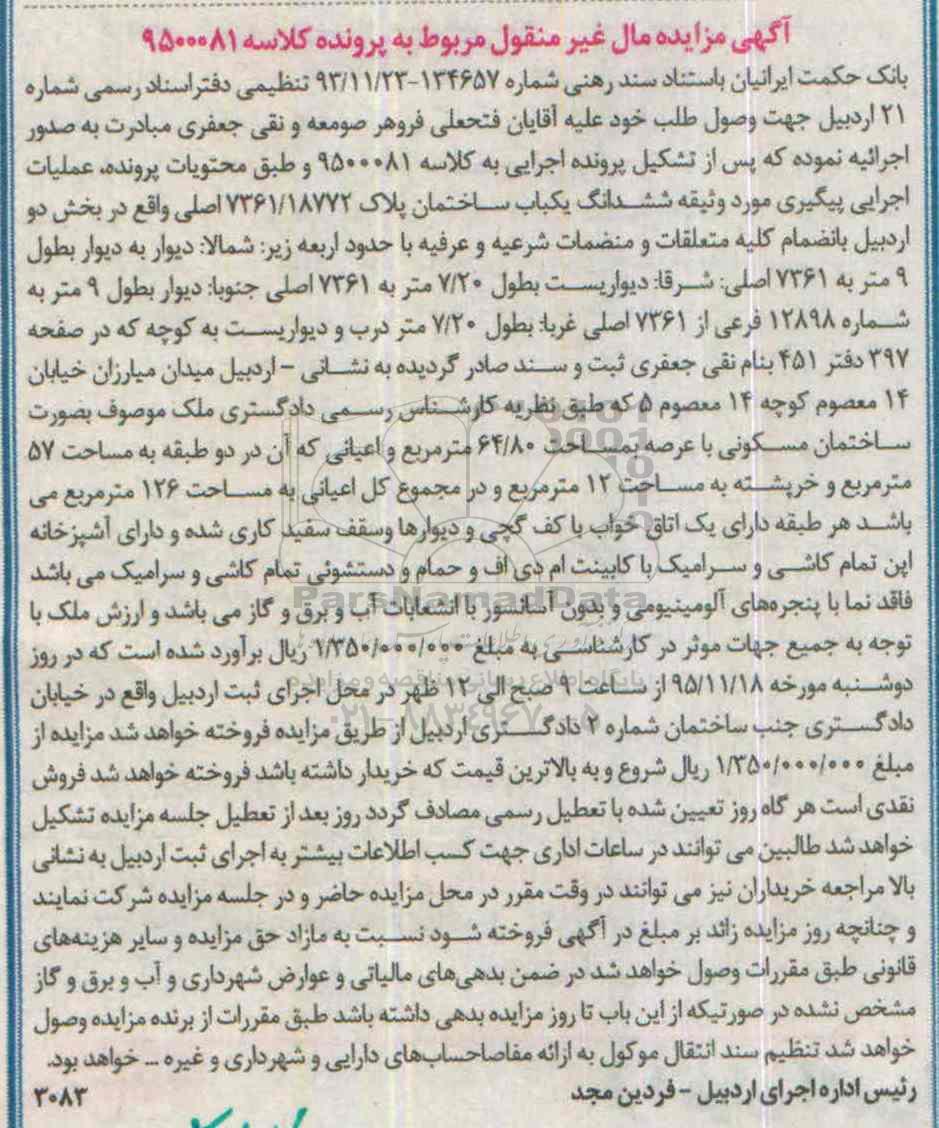 آگهی مزایده مال غیر منقول مربوط به پرونده کلاسه ۹۵۰۰۰۸۱
بانک حکمت ایرانیان باستناد سند رهنی شماره ۱۳۴۶۵۷-۹۳/۱۱/۲۳ تنظیمی دفتراسناد رسمی شماره
۲۱ اردبیل جهت وصول طلب خود علیه آقایان فتحعلی فروهر صومعه و نقی جعفری مبادرت به صدور
اجرائیه نموده که پس از تشکیل پرونده اجرایی به کلاسه ۹۵۰۰۰۸۱ و طبق محتویات پرونده، عملیات
اجرایی پیگیری مورد وثیقه ششدانگ یکباب ساختمان پلاک ۷۳۶۱/۱۸۷۷۲ اصلی واقع در بخش دو
اردبیل بانضمام کلیه متعلقات و منضمات شرعیه و عرفیه با حدود اربعه زیر: شمالا: دیوار به دیوار بطول
۹ متر به ۷۳۶۱ اصلی: شرقا: دیواریست بطول ۷/۲۰ متر به ۷۳۶۱ اصلی جنوبا: دیوار بطول ۹ متر به
شماره ۱۲۸۹۸ فرعی از ۷۳۶۱ اصلی غربا: بطول ۷/۲۰ متر درب و دیواریست به کوچه که در صفحه
۳۹۷ دفتر ۴۵۱ بنام نقی جعفری ثبت و سند صادر گردیده به نشانی – اردبیل میدان مبارزان خیابان
۱۴ معصوم کوچه ۱۴ معصوم ۵ که طبق نظریه کارشناس رسمی دادگستری ملک موصوف بصورت
ساختمان مسکونی با عرصه بمساحت ۶۴/۸۰ مترمربع و اعیانی که آن در دو طبقه به مساحت ۵۷
مترمربع و خرپشته به مساحت ۱۲ مترمربع و در مجموع کل اعیانی به مساحت ۱۲۶ مترمربع می
باشد هر طبقه دارای یک اتاق خواب با کف گچی و دیوارها وسقف سفید کاری شده و دارای آشپزخانه
اپن تمام کاشی و سرامیک با کابینت ام دی اف و حمام و دستشوئی تمام کاشی و سرامیک می باشد
فاقد نما با پنجره‌های آلومینیومی و بدون آسانسور با انشعابات آب و برق و گاز می باشد و ارزش ملک با
ParsNamadData
توجه به جمیع جهات موثر در کارشناسی به مبلغ ۱/۳۵۰/۰۰۰/۰۰۰ ریال برآورد شده است که در روز
پایگاه اطلاع رسانی مناقصه و مزایده
دوشنبه مورخه ۹۵/۱۱/۱۸ از ساعت ۹ صبح الی ۱۲ ظهر در محل اجرای ثبت اردبیل واقع در خیابان
دادگستری جنب ساختمان شماره ۲ دادگستری اردبیل از طریق مزایده فروخته خواهد شد مزایده از
مبلغ ۱/۳۵۰/۰۰۰/۰۰۰ ریال شروع و به بالاترین قیمت که خریدار داشته باشد فروخته خواهد شد فروش
نقدی است هر گاه روز تعیین شده با تعطیل رسمی مصادف گردد روز بعد از تعطیل جلسه مزایده تشکیل
خواهد شد طالبین می توانند در ساعات اداری جهت کسب اطلاعات بیشتر به اجرای ثبت اردبیل به نشانی
بالا مراجعه خریداران نیز می توانند در وقت مقرر در محل مزایده حاضر و در جلسه مزایده شرکت نمایند
و چنانچه روز مزایده زائد بر مبلغ در آگهی فروخته شود نسبت به مازاد حق مزایده و سایر هزینه‌های
قانونی طبق مقررات وصول خواهد شد در ضمن بدهی‌های مالیاتی و عوارض شهرداری و آب و برق و گاز
مشخص نشده در صورتیکه از این باب تا روز مزایده بدهی داشته باشد طبق مقررات از برنده مزایده وصول
خواهد شد تنظیم سند انتقال موکول به ارائه مفاصاحساب‌های دارایی و شهرداری و غیره ... خواهد بود.
رئیس اداره اجرای اردبیل – فردین مجد
۳۰۸۳